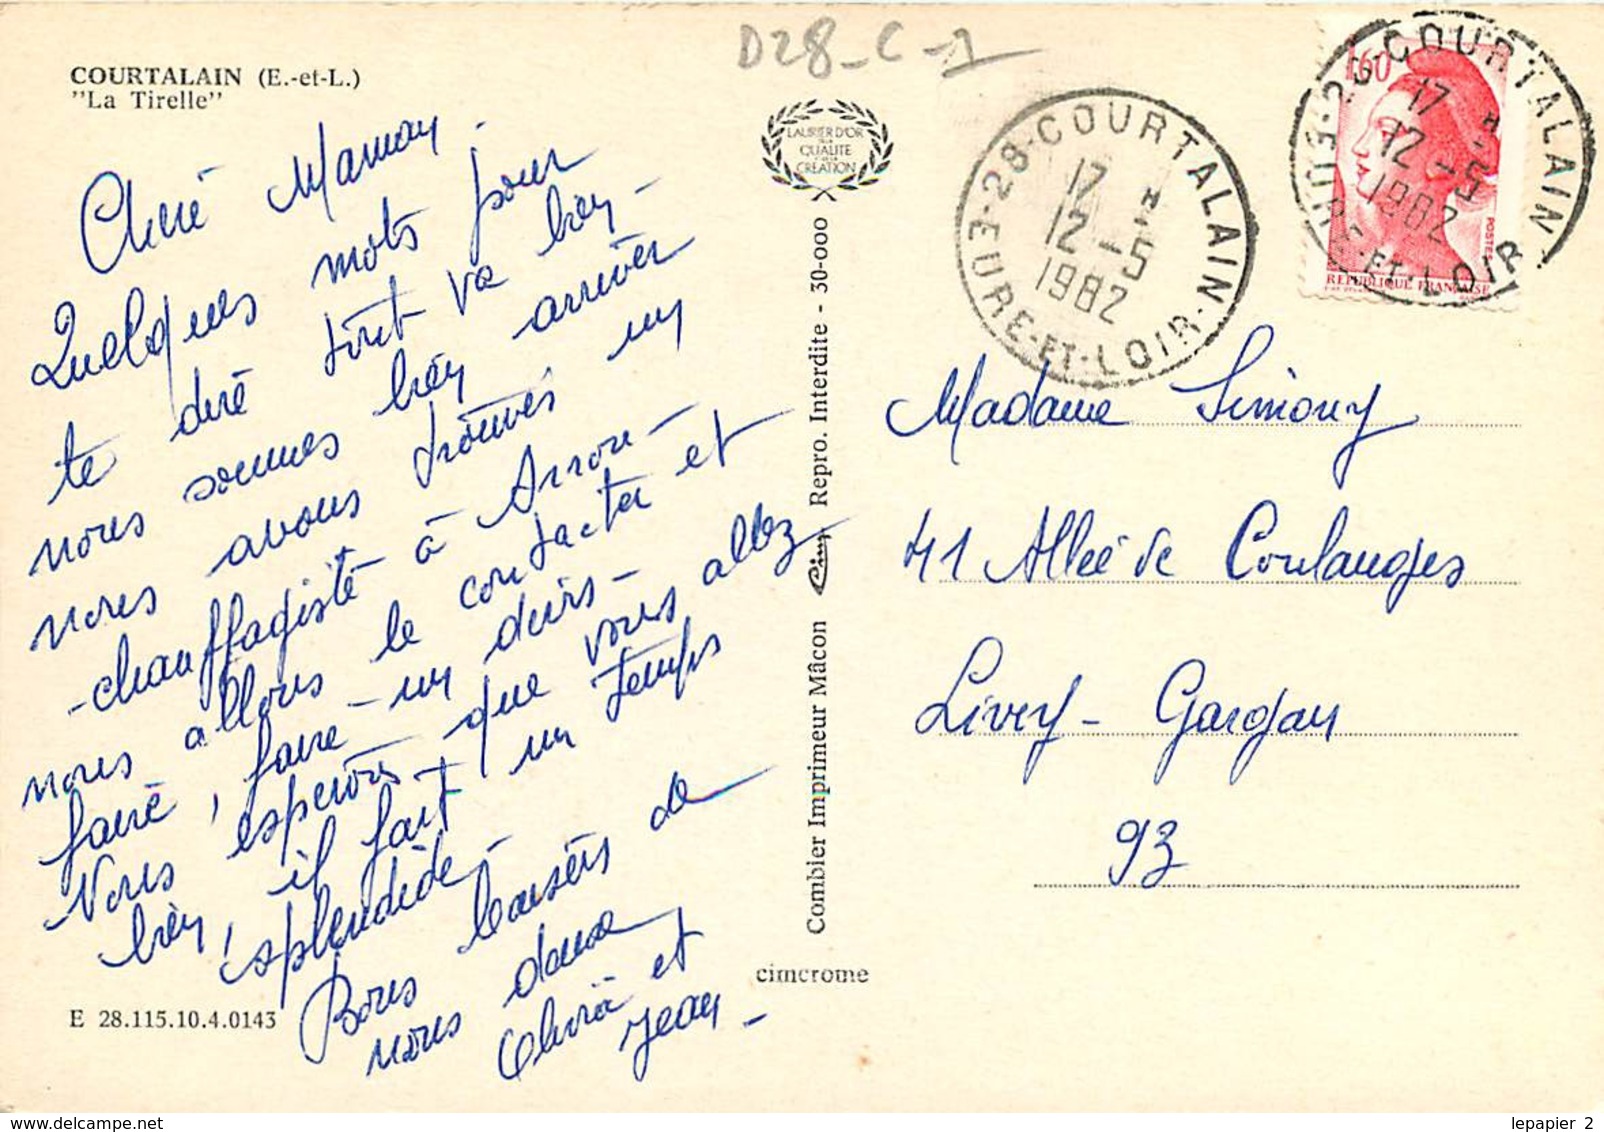 COURTALAIN (E.-et-L.)
"La Tirelle"
D28-C-1
Chère Maman.
Quelques mots pour
te dire tout va bien -
nous sommes bien arrivés
nous avons trouvés un
-chauffagiste à Arrou -
nous allons le contacter et
faire, faire - un devis -
Nous espérons que vous allez
bien, il fait un temps
splendide -
Bons baisers de
nous deux
et
Jean -
E 28.115.10.4.0143
LAURIER D'OR
DE LA
QUALITÉ
CRÉATION
Combier Imprimeur Mâcon Cim Repro. Interdite - 30-000
cimcrome
28-COURTALAIN
EURE-ET-LOIR
17 H
12 -5
1982
28-COURTALAIN
EURE-ET-LOIR
17 H
12 -5
1982
1,60
POSTES
REPUBLIQUE FRANÇAISE
Madame Simony
41 Allée de Coulanges
Livry - Gargan
93
lepapier_2